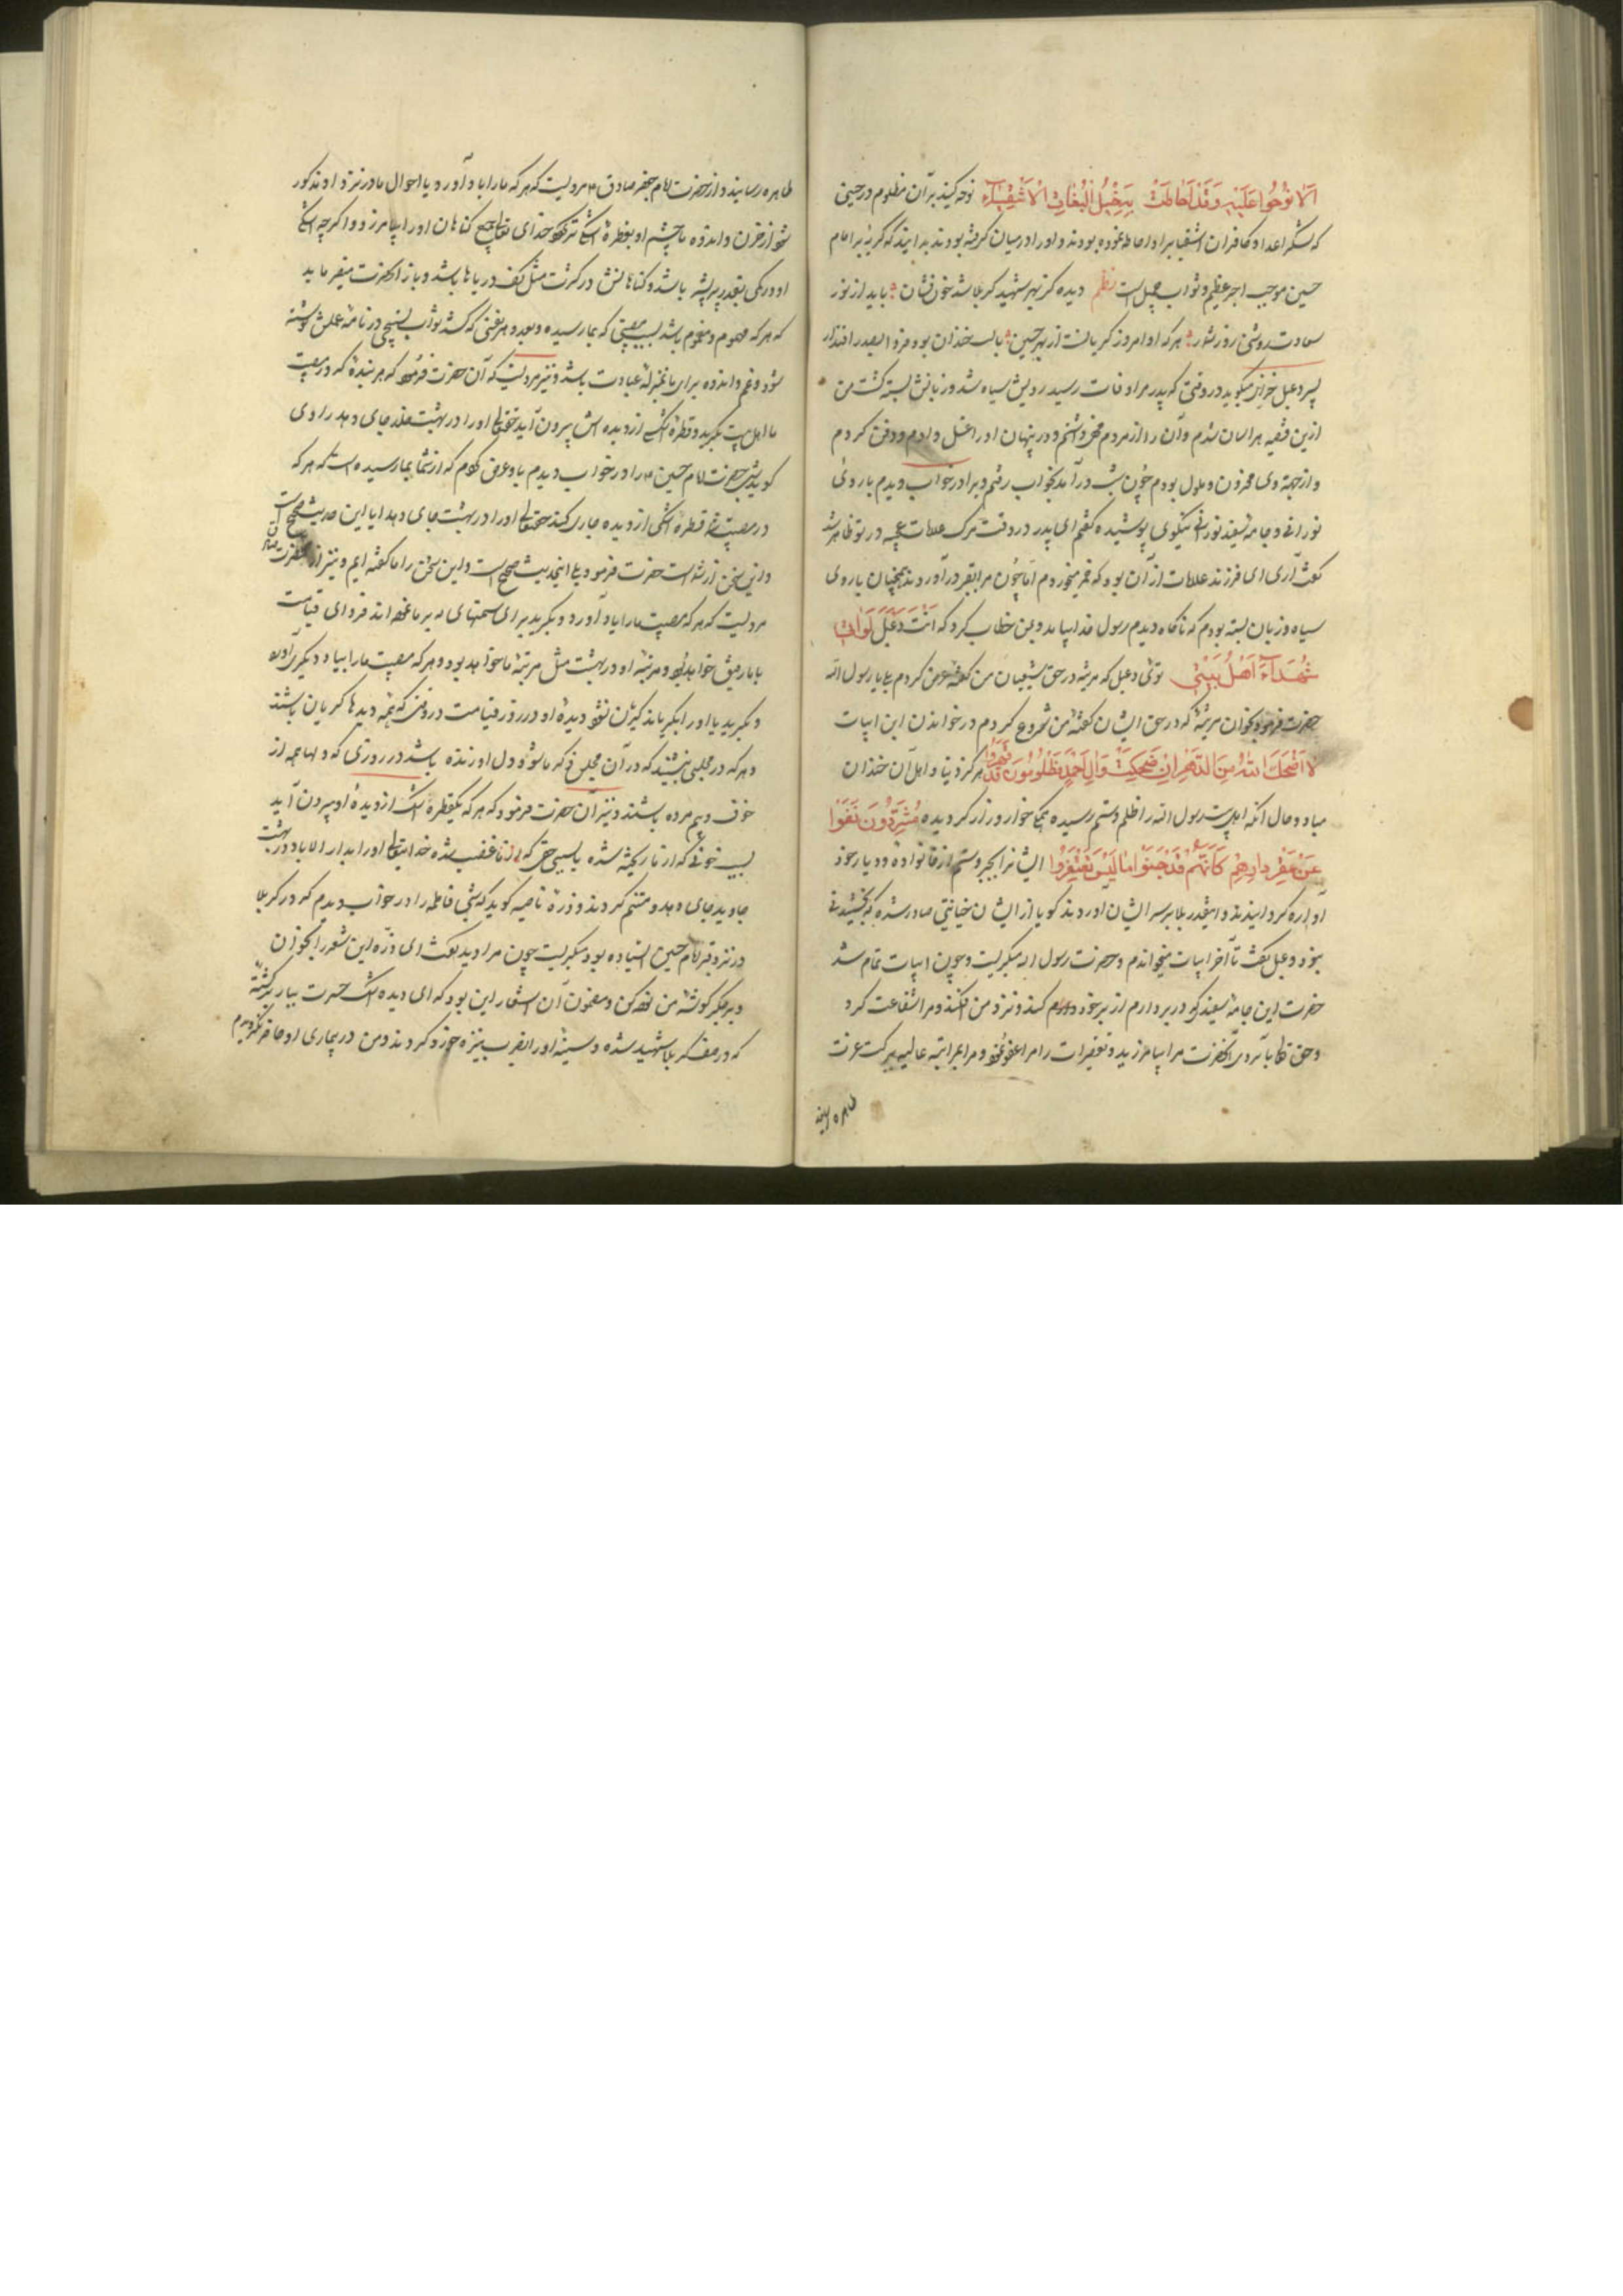 الا نوحوا علیه وقد احاطت بخیل البغات الاشقیاء نوحه کنید بر آن مظلوم در حینی
که لشکر اعدا و کافران اشقیا بر او احاطه نموده بودند و او را در میان گرفته بودند بدانید که گریه بر امام
حسین موجب اجر عظیم و ثواب جمیل است نظم دیده کز بهر شهید کربلا شد خون فشان باید از نور
سعادت روشنی روز نشور هر که او امروز گریانست از بهر حسین با لب خندان بود فردا
پسر دعبل خزاعی میگوید در وقتی که پدر مرا وفات رسید رویش سیاه شد و زبانش بسته گشت من
ازین قضیه هراسان شدم و آن را از مردم مخفی داشتم و در پنهان او را غسل دادم و دفن کردم
و از جهة وی محزون و ملول بودم چون شب درآمد بخواب رفتم و پدر را در خواب دیدم با روئی
نورانی و جامه سفید نورانی نیکوی پوشیده گفتم ای پدر در وقت مرک علامات عجیبه در تو ظاهر شد
گفت آری ای فرزند علامات از آن بود که خمر میخوردم اما چون مرا بقبر درآوردند همچنان با روی
سیاه و زبان بسته بودم که ناگاه دیدم رسول خدا بیامد و بمن خطاب کرد که انت دعبل
شهداء اهل بیتی توئی دعبل که مرثیه در حق شیعیان من گفته عرض کردم بلی یا رسول الله
حضرت فرمود بخوان مرثیهٔ که در حق ایشان گفتهٔ من شروع کردم در خواندن این ابیات
لا اضحک الله سن الدهر ان ضحکت و آل احمد مظلومون قد قهروا هرگز دنیا و اهل آن خندان
مباد و حال آنکه اهل بیت رسول الله را ظلم و ستم رسیده همگی خوار و زار گردیده مشردون نفوا
عن عقر دارهم کانهم قد جنوا ما لیس یغتفروا ایشانرا بجبر و ستم از خانوادهٔ و دیار خود
آواره گردانیدند و اینقدر بلا بر سر ایشان آوردند گویا از ایشان خیانتی صادر شده که بخشیدنی
نبود دعبل گفت تا آخر ابیات میخواندم و حضرت رسول الله میگریست و چون ابیات تمام شد
حضرت این جامهٔ سفید که در بر دارم از بر خود کند و نزد من افکند و مرا شفاعت کرد
و حق تعالی بآبروی آنحضرت مرا بیامرزید و تقصیرات مرا عفو نمود و مرا بمراتبه عالیه ببرکت عرت
طاهره رسانید و از حضرت امام جعفر صادق مرویست که هر که ما را یاد آورد و یا احوال ما در نزد او مذکور
شود از حزن و اندوه ما چشم او بقطرهٔ اشکی تر شود خدای تعالی جمیع گناهان او را بیامرزد و اگر چه اشک
او در کمی بقدر پر پشه باشد و گناهانش در کثرت مثل کف دریاها باشد و باز آنحضرت میفرماید
که هر که مهموم و مغموم باشد بسبب مصیبتی که بما رسیده و بعدد هر نفسی که کشد ثواب تسبیح در نامه عملش نوشته
شود و غم و اندوه برای ما بمنزلهٔ عبادت باشد و نیز مرویست که آن حضرت فرمود که هر بنده که در مصیبت
ما اهل بیت بگرید و قطرهٔ اشک از دیده اش بیرون آید حقتعالی او را در بهشت خلد جای دهد راوی
گوید شبی حضرت امام حسین را در خواب دیدم باو عرض کردم که از شما بما رسیده است که هر که
در مصیبت شما قطره اشکی از دیده جاری کند حقتعالی او را در بهشت جای دهد ایا این حدیث صحیح است
و این سخن از شماست حضرت فرمود بلی اینحدیث صحیح است و این سخن را ما گفته ایم و نیز از حضرت صادق
مرویست که هر که مصیبت ما را یاد آورد و بگرید برای ستمهای که بر ما نموده اند فردای قیامت
با ما رفیق خواهد بود و مرتبهٔ او در بهشت مثل مرتبهٔ ما خواهد بود و هر که مصیبت ما را بیاد دیگری آورد
و بگرید یا او را بگریاند گریان نشود دیدهٔ او در روز قیامت در وقتی که همه دیدها گریان باشند
و هر که در مجلسی بنشیند که در آن مجلس ذکر ما شود دل او زنده باشد در روزی که دلها همه از
خوف و بیم مرده باشند و نیز آن حضرت فرمود که هر که یکقطره اشک از دیدهٔ او بیرون آید
بسبب خونی که از ما ریخته شده یا بسبب حقی که از ما غصب شده خدایتعالی او را ابد الاباد در بهشت
جاوید جای دهد و متنعم گرداند و ذرهٔ ناصیه گوید که شبی فاطمه را در خواب دیدم که در کربلا
در نزد قبر امام حسین ایستاده بود و میگریست چون مرا دید گفت ای ذره این شعر را بخوان
و بر جگر گوشه من نوحه کن و مضمون آن اشعار این بود که ای دیده اشک حسرت ببار بر کشتهٔ
که در صف کربلا شهید شده و سینهٔ او را بضرب نیزه خورد کردند و من در بیماری او حاضر نگردیدم
طاهره رسانید